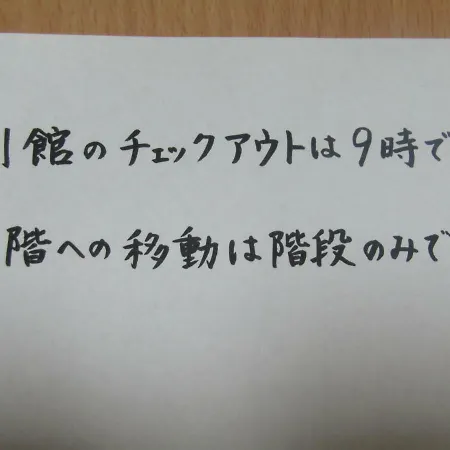 館のチェックアウトは9時で
階への移動は階段のみで